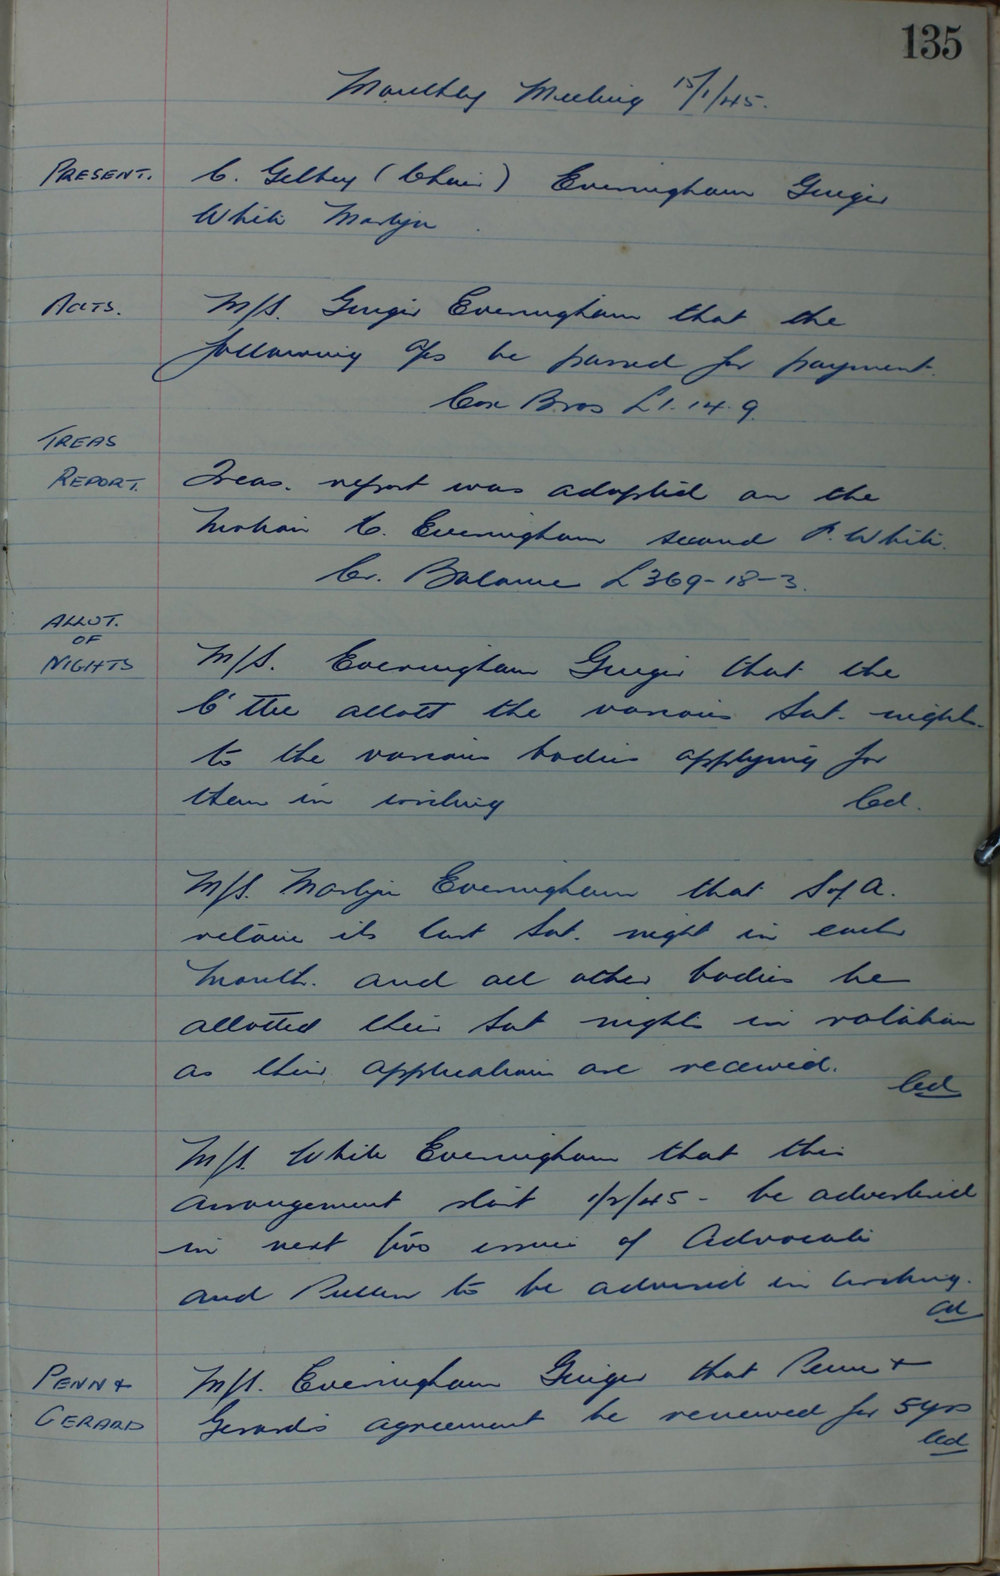 135
Monthly Meeting 15/1/45.
PRESENT. C. Gelbey (Chair) Everingham Ginger
White Martyn
Accts. M/S. Ginger Everingham that the
following a/cs be passed for payment.
Cox Bros £1.14.9.
TREAS
REPORT. Treas. report was adopted on the
motion C. Everingham second P. White.
Cr. Balance £369-18-3.
ALLOT.
OF
NIGHTS M/S. Everingham Ginger that the
C'ttee allott the various Sat. nights
to the various bodies applying for
them in writing Cd.
M/S. Martyn Everingham that S of A.
retain its last Sat. night in each
month. and all other bodies be
allotted their Sat nights in rotation
as their applications are received.
Cd
M/S. White Everingham that this
arrangement start 1/2/45 - be advertised
in next two issues of Advocate
and Pullen to be advised in writing.
Cd
PENN & M/S. Everingham Ginger that Penn &
GERARD Gerards agreement be renewed for 5yrs
Cd